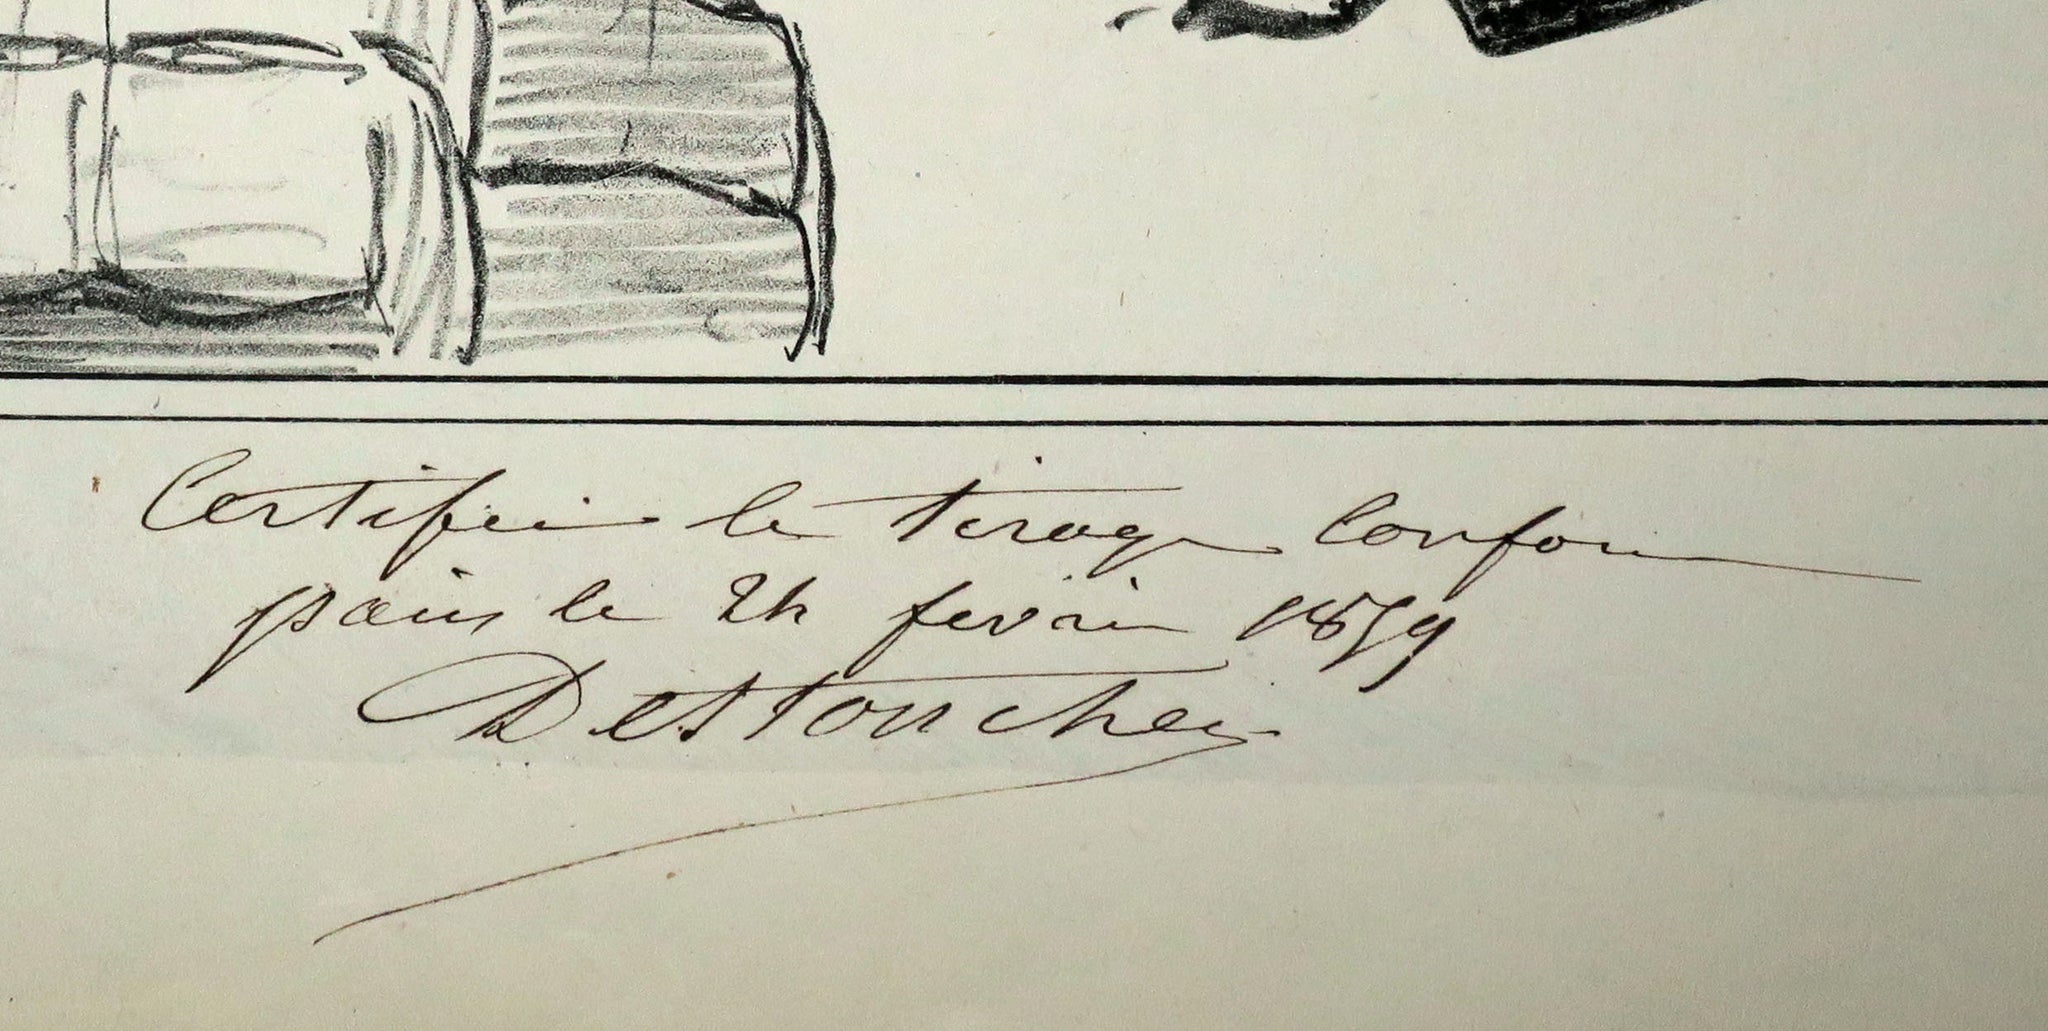 Certifié le tirage conforme
paris le 24 fevrier 1859
Destouches